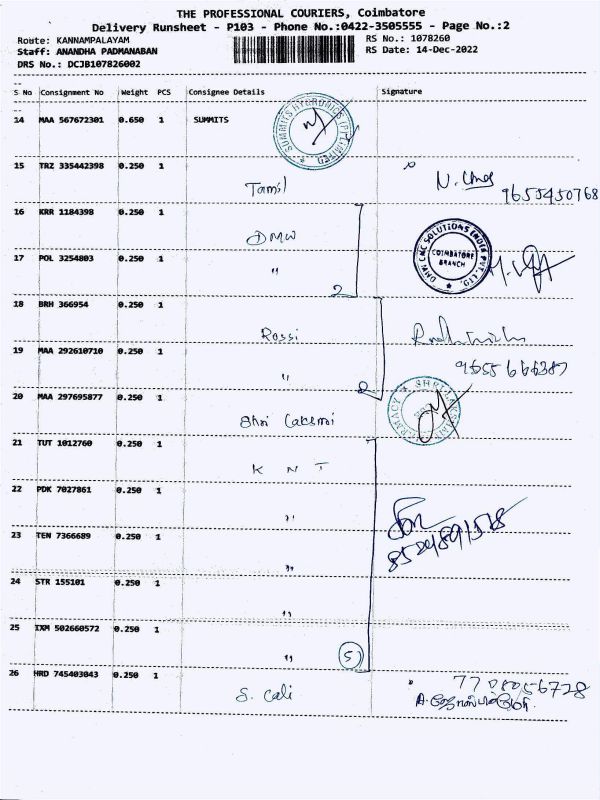 THE PROFESSIONAL COURIERS, Coimbatore
Delivery Runsheet - P103 - Phone No.:0422-3505555 - Page No.:2
Route: KANNAMPALAYAM
RS No.: 1078260
Staff: ANANDHA PADMANABAN
RS Date: 14-Dec-2022
DRS No.: DCJB107826002
S No Consignment No Weight PCS Consignee Details Signature
14 MAA 567672301 0.650 1 SUMMITS
SUMMITS HYGRONICS (P) LIMITED
15 TRZ 335442398 0.250 1
Tamil
9655450768
16 KRR 1184398 0.250 1
DMW
DMW CNC SOLUTIONS INDIA PVT. LTD.
COIMBATORE
BRANCH
17 POL 3254803 0.250 1
"
2
18 BRH 366954 0.250 1
Rossi
19 MAA 292610710 0.250 1
9655666387
"
2
20 MAA 297695877 0.250 1
Shri Laksmi
21 TUT 1012760 0.250 1
K N T
22 PDK 7027861 0.250 1
"
8524891528
23 TEN 7366689 0.250 1
"
24 STR 155101 0.250 1
"
25 IXM 502660572 0.250 1
"
5
26 HRD 745403043 0.250 1
S. Cali
7708056728